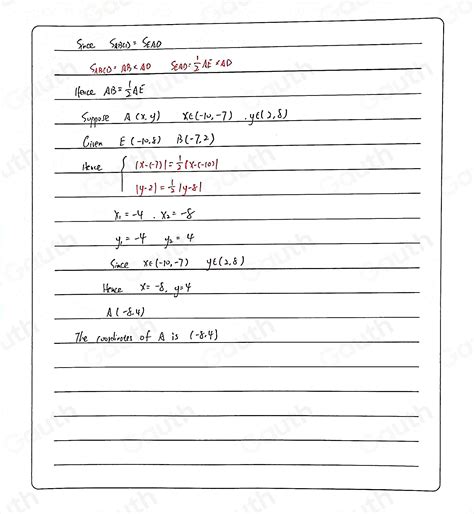 Since S_ABCD = S_EAD
S_ABCD = AB × AD   S_EAD = 1/2 AE × AD
Hence AB = 1/2 AE
Suppose A (x, y)   x∈(-10, -7) , y∈(2, 8)
Given E (-10, 8)   B(-7, 2)
Hence { |x-(-7)| = 1/2 |x-(-10)|
|y-2| = 1/2 |y-8|
x₁ = -4 , x₂ = -8
y₁ = -4   y₂ = 4
Since x∈(-10, -7)   y∈(2, 8)
Hence x = -8, y=4
A (-8, 4)
The coordinates of A is (-8, 4)